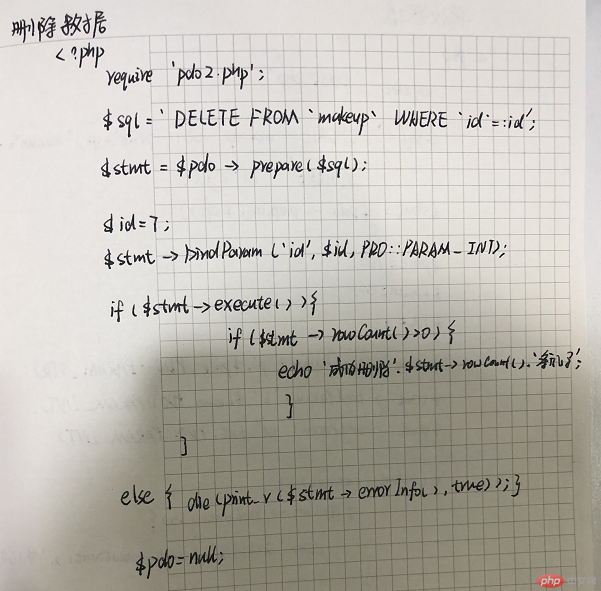 删除数据
<?php
require 'pdo2.php';
$sql = 'DELETE FROM `makeup` WHERE `id`=:id';
$stmt = $pdo -> prepare($sql);
$id=7;
$stmt -> bindParam('id', $id, PRO::PARAM_INT);
if ($stmt->execute()){
if ($stmt -> rowCount()>0) {
echo '成功删除'.$stmt->rowCount().'条记录';
}
}
else { die(print_r($stmt->errorInfo(),true));}
$pdo=null;
php